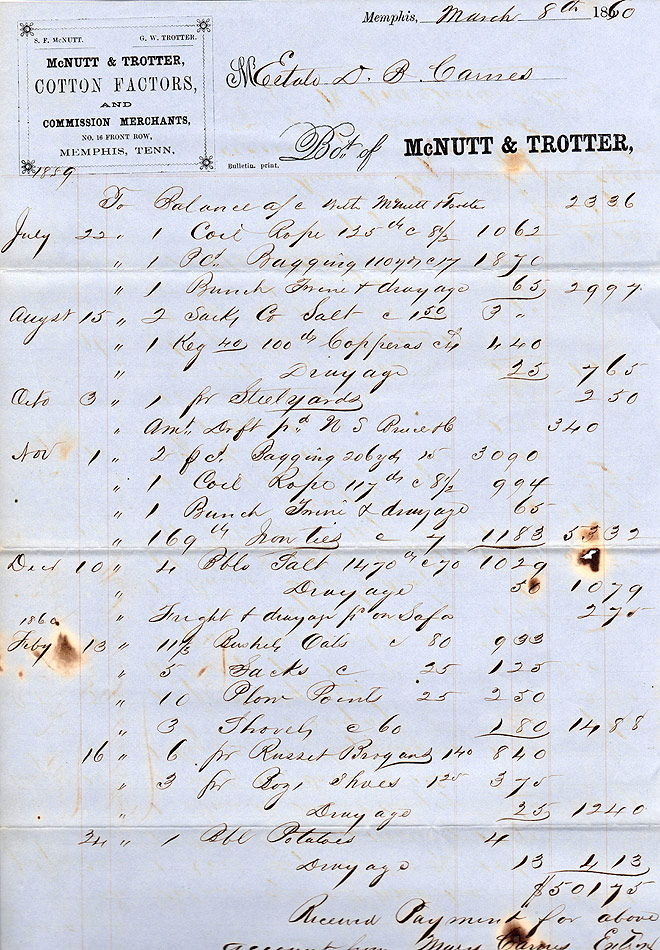 Memphis, March 8th 1860
S. F. McNUTT. G. W. TROTTER.
McNUTT & TROTTER,
COTTON FACTORS,
AND
COMMISSION MERCHANTS,
NO. 16 FRONT ROW,
MEMPHIS, TENN,
M Estate D. B. Carnes
Bot. of McNUTT & TROTTER,
Bulletin. print.
1859
To Balance a/c with McNutt & Trotter 23 36
July 22 " 1 Coil Rope 125 lbs c 8 1/2 10 62
" 1 Pc. Bagging 110 yds c 17 18 70
" 1 Bunch Twine & drayage 65 29 97
Augst 15 " 2 Sacks Co Salt c 1 50 3 "
" 1 Keg 40 100 lbs Copperas c 4 4 40
" Drayage 25 7 65
Octo 3 " 1 pr Steelyards 2 50
" Amt. Drft pd N S Bruce & C 340
Nov 1 " 2 pc. Bagging 206 yds 15 30 90
" 1 Coil Rope 117 lbs c 8 1/2 9 94
" 1 Bunch Twine & drayage 65
" 169 lbs Iron ties c 7 11 83 53 32
Decr 10 " 4 Bbls Salt 1470 lbs c 70 10 29
" Drayage 50 10 79
" Freight & drayage pd on Sofa 2 75
1860
Feby 13 " 11 2/3 Bushels Oats c 80 9 33
" 5 Sacks c 25 1 25
" 10 Plow Points 25 2 50
" 3 Shovels c 60 1 80 14 88
16 " 6 pr Russet Brogans 1 40 8 40
" 3 pr Boys Shoes 1 25 3 75
" Drayage 25 12 40
24 " 1 Bbl Potatoes 4
Drayage 13 4 13
$501 75
Received Payment for above
account from Mary Carnes